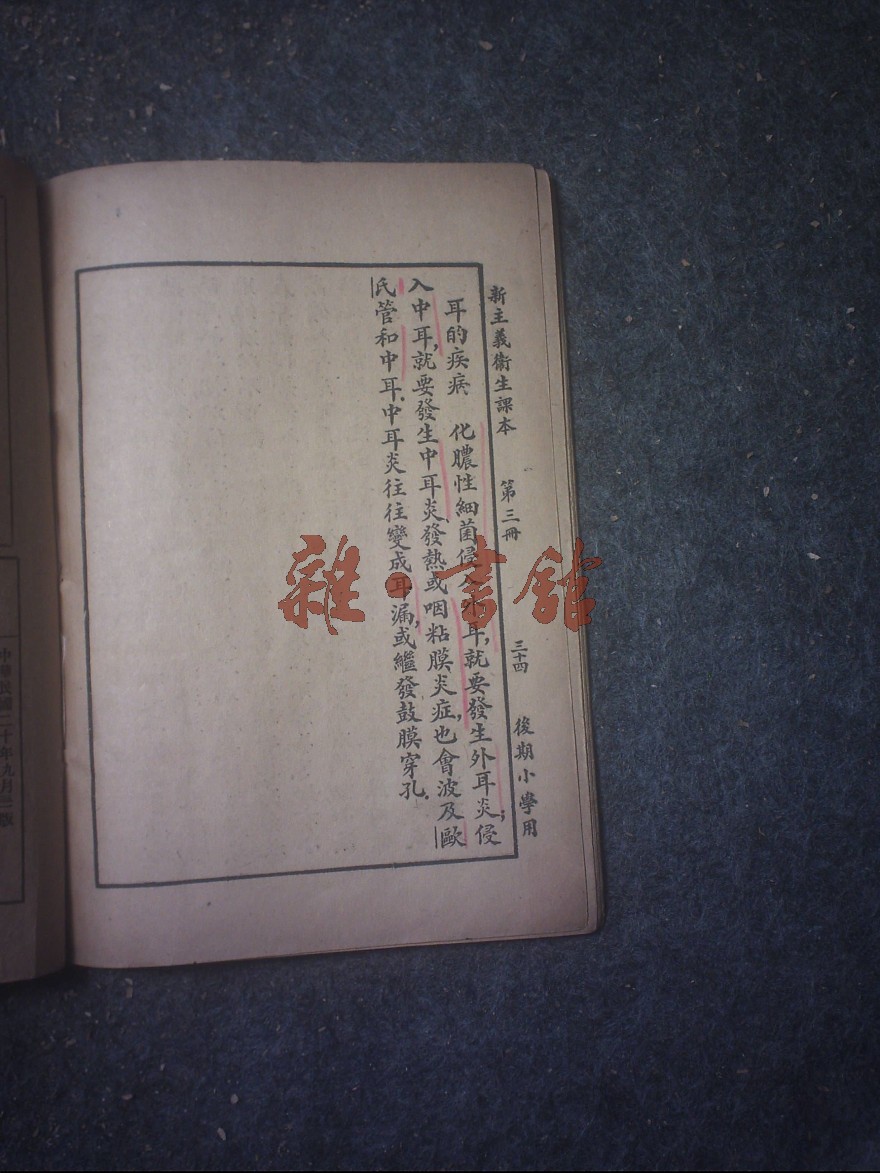 新主義衞生課本　第三冊　三十四　後期小學用
耳的疾病　化膿性細菌侵入外耳，就要發生外耳炎；侵
入中耳，就要發生中耳炎發熱或咽粘膜炎症，也會波及歐
氏管和中耳．中耳炎往往變成耳漏，或繼發鼓膜穿孔．
雜·書館
中華民國二十年九月三版